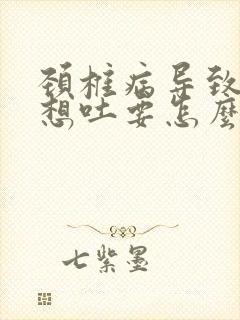 颈椎病导致
想吐要怎麼
七紫墨